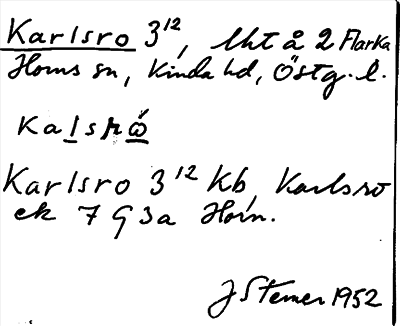 Karlsro 3¹², lht å 2 Flarka
Horns sn, Kinda hd, Östg. l.
Kalsrω̇
Karlsro 3¹² kb, Karlsro
ek 7 G 3a Horn.
J Sterner 1952